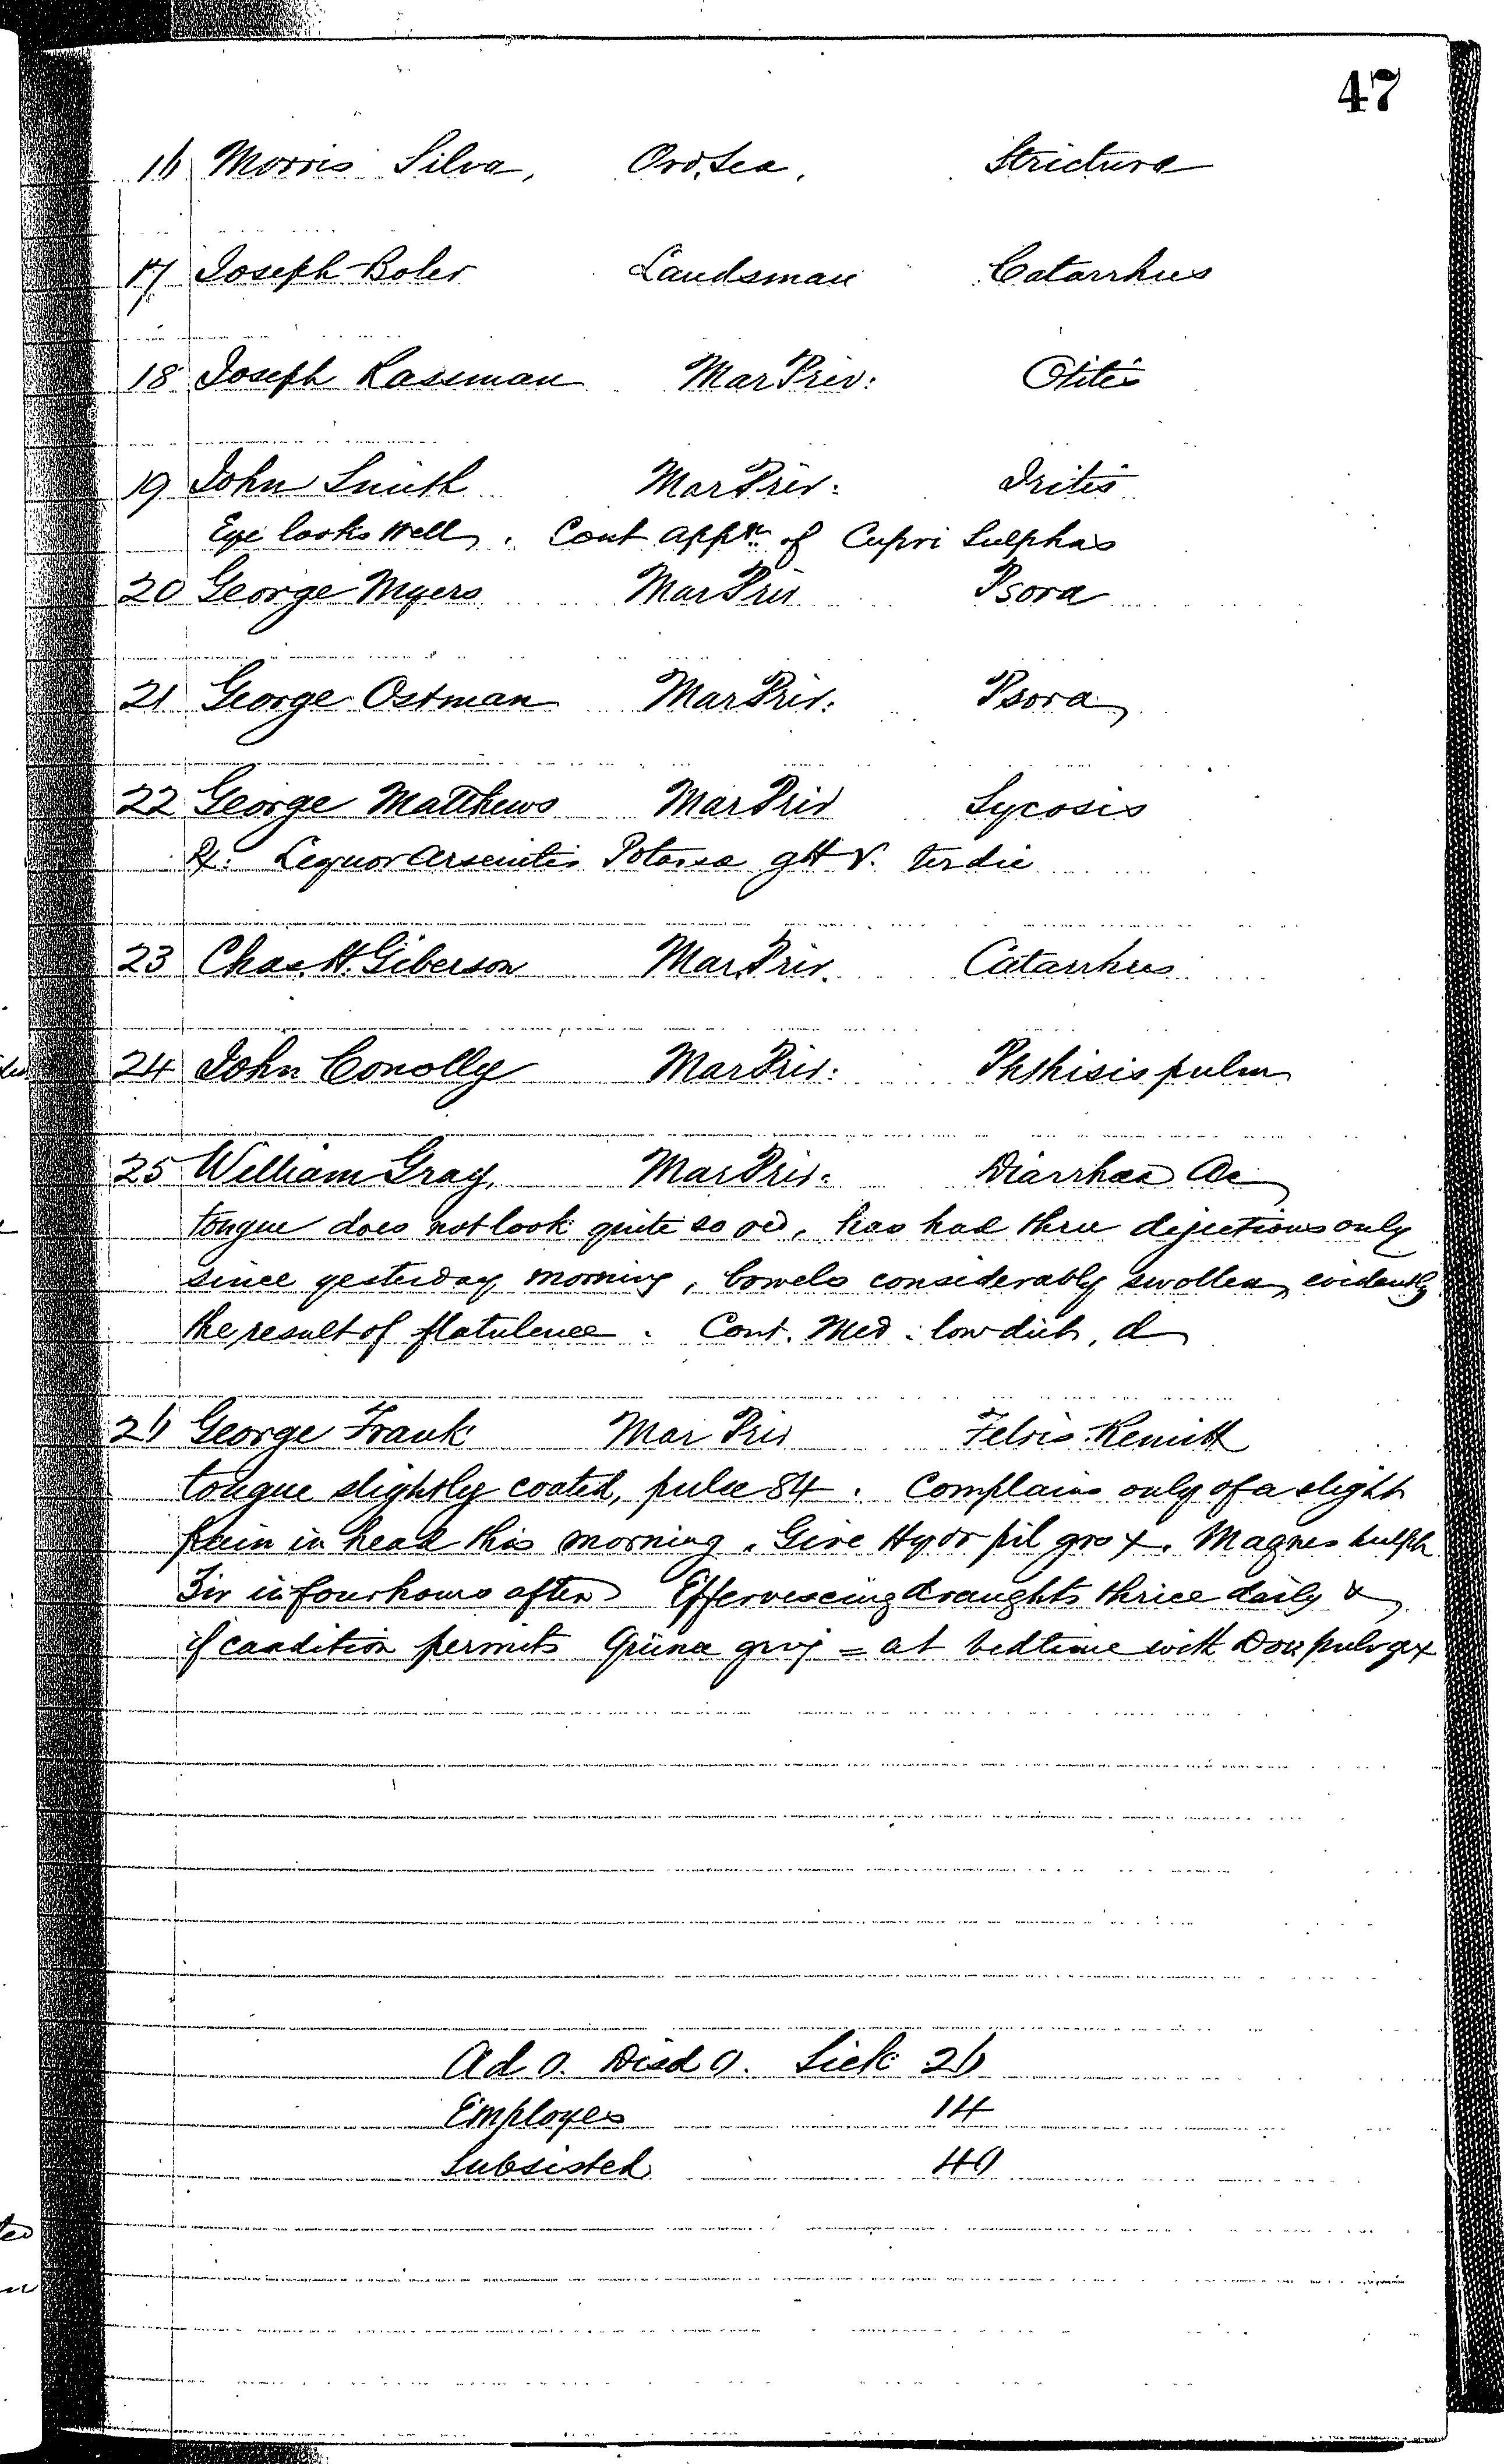 47
16 Morris Silva, Ord. Sea, Strictura
17 Joseph Boler Landsman Catarrhus
18 Joseph Rassman Mar Priv: Otitis
19 John Smith Mar Priv: Iritis
Eye looks Well, . Cont appn of Cupri Sulphas
20 George Myers Mar Priv Psora
21 George Ostman Mar Priv: Psora
22 George Matthews Mar Priv Sycosis
Rx: Liquor Arsenitis Potassa gtt V. ter die
23 Chas. H. Giberson Mar. Priv. Catarrhus
24 John Conolly Mar Priv: Phthisis pulm
25 William Gray, Mar Priv: Diarrhœa Ac
tongue does not look quite so red, has had three dejections only
since yesterday morning, bowels considerably swollen, evidently
the result of flatulence. Cont. Med: low diet,
26 George Frank Mar Priv Febris Remitt
tongue slightly coated, pulse 84. Complains only of a slight
pain in head this morning. Give Hydr pil grs X. Magnes Sulph
℥iv in four hours after Effervescing draughts thrice daily &
if condition permits Quina = at bedtime with Dov pulv grx
Ad 0. Disd 0. Sick 26
Employes 14
Subsisted 40